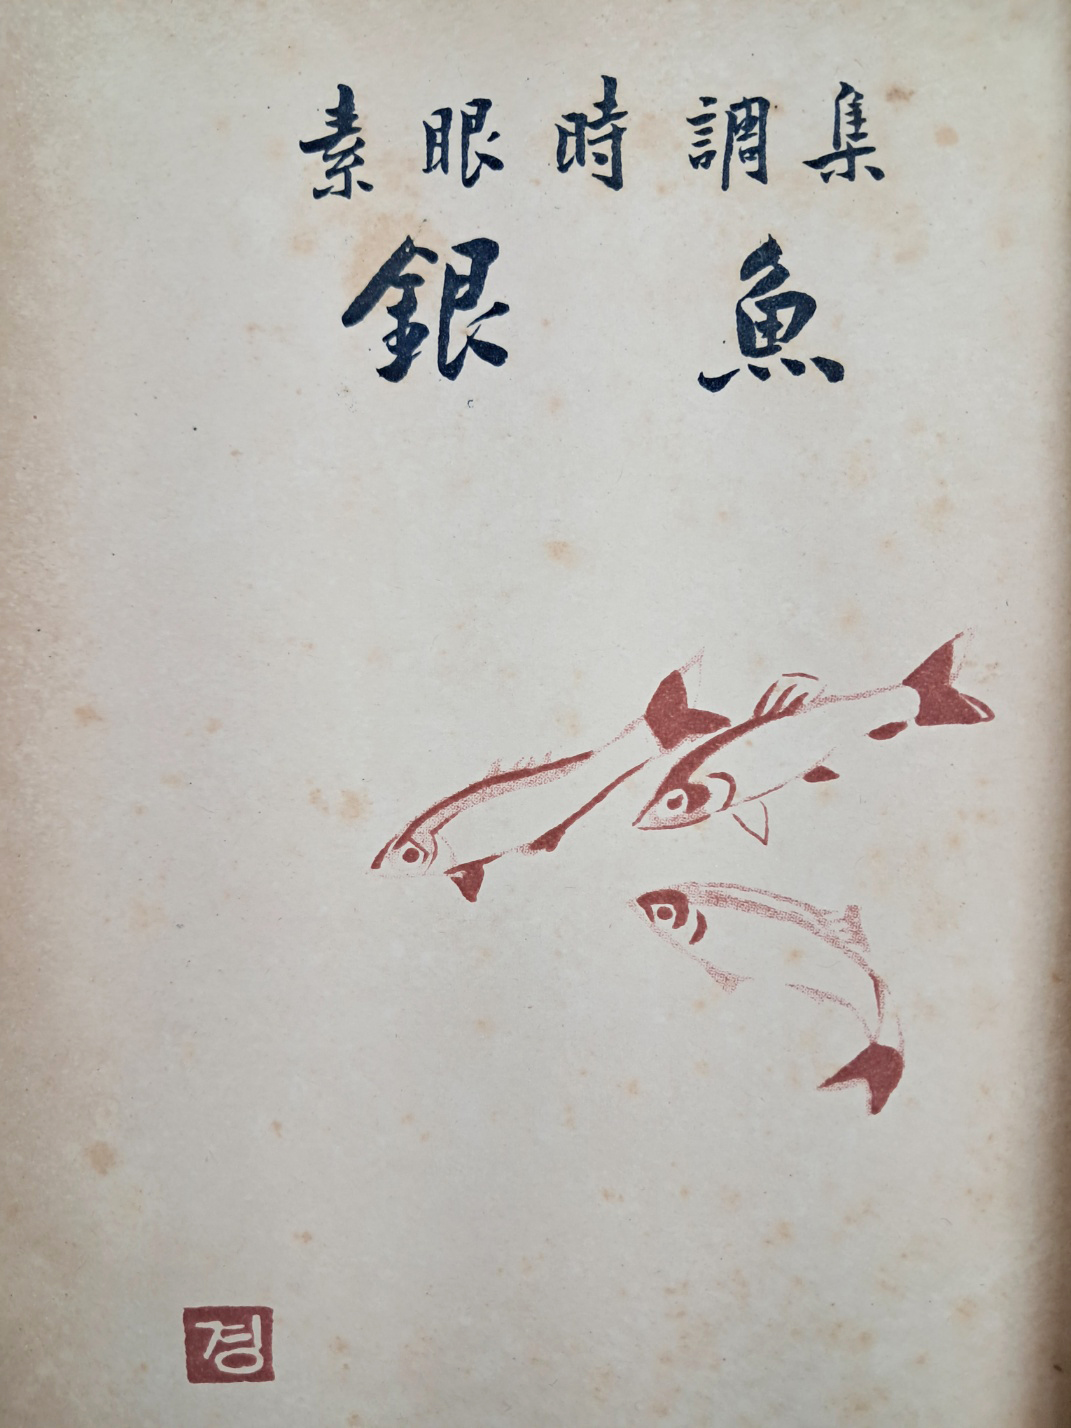 素眼時調集
銀魚
경